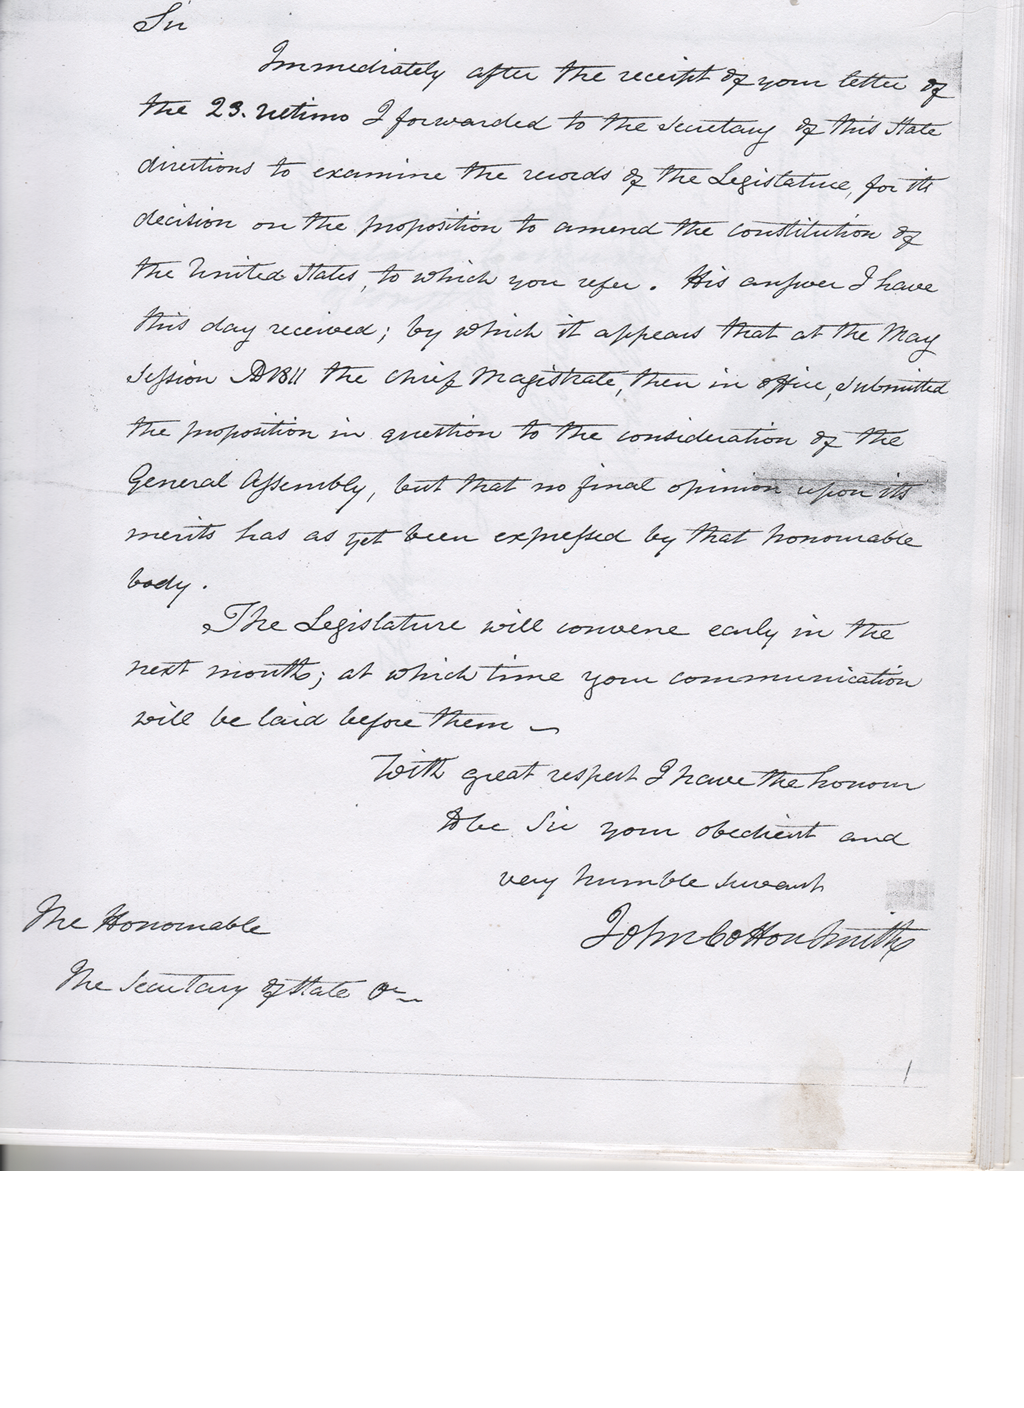 Sir
Immediately after the receipt of your letter of
the 23. ultimo I forwarded to the Secretary of this State
directions to examine the records of the Legislature, for its
decision on the proposition to amend the constitution of
the United States, to which you refer. His answer I have
this day received; by which it appears that at the May
Session AD 1811 the Chief Magistrate, then in office, submitted
the proposition in question to the consideration of the
General Assembly, but that no final opinion upon its
merits has as yet been expressed by that honourable
body.
The Legislature will convene early in the
next month; at which time your communication
will be laid before them —
With great respect I have the honour
to be Sir your obedient and
very humble servant
John Cotton Smith
The Honourable
The Secretary of State